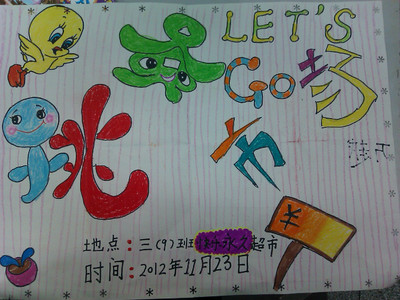 LET'S
GO
跳蚤市场
地点：三(9)班永久超市
时间：2012年11月23日
¥